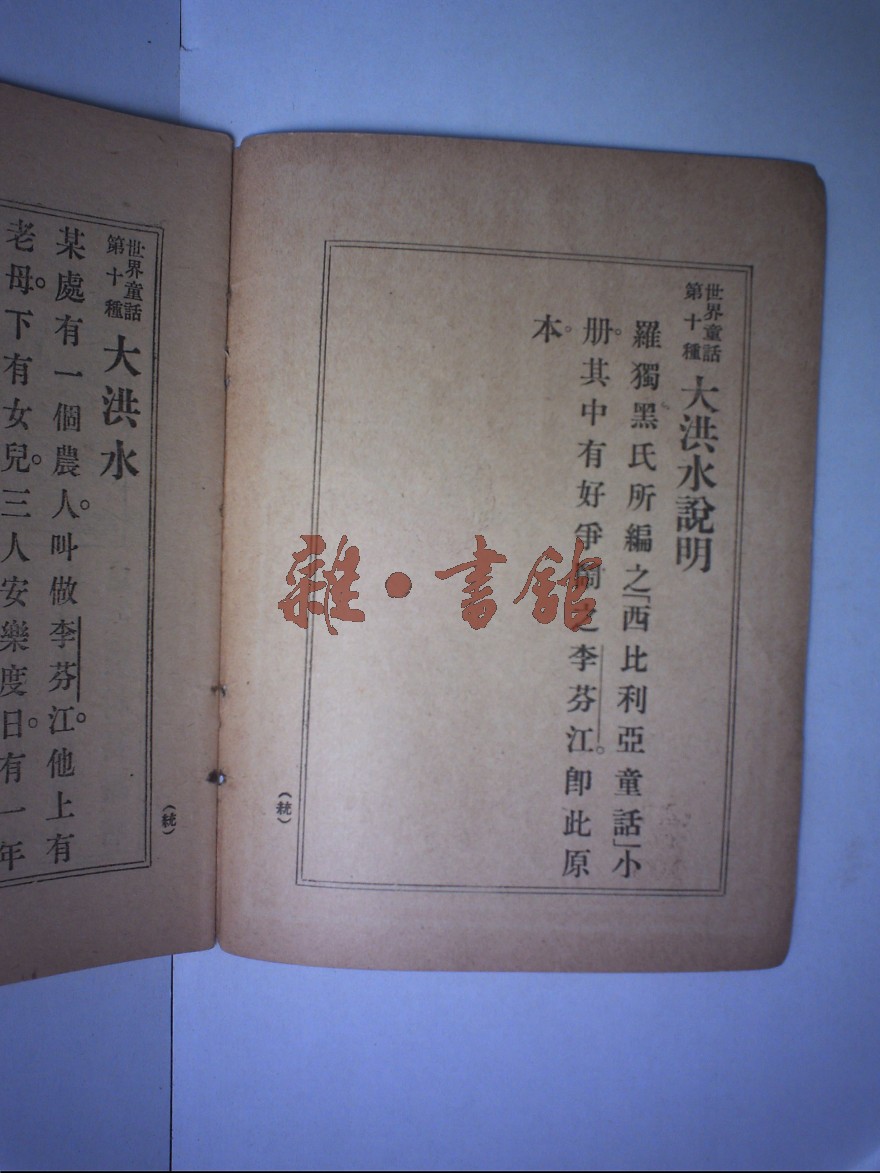 世界童話
第十種
大洪水說明
羅獨黑氏所編之「西比利亞童話」小
册。其中有好爭之李芬江。卽此原
本。
(統)
世界童話
第十種
大洪水
某處有一個農人。叫做李芬江。他上有
老母。下有女兒。三人安樂度日。有一年
(統)
雜·書館